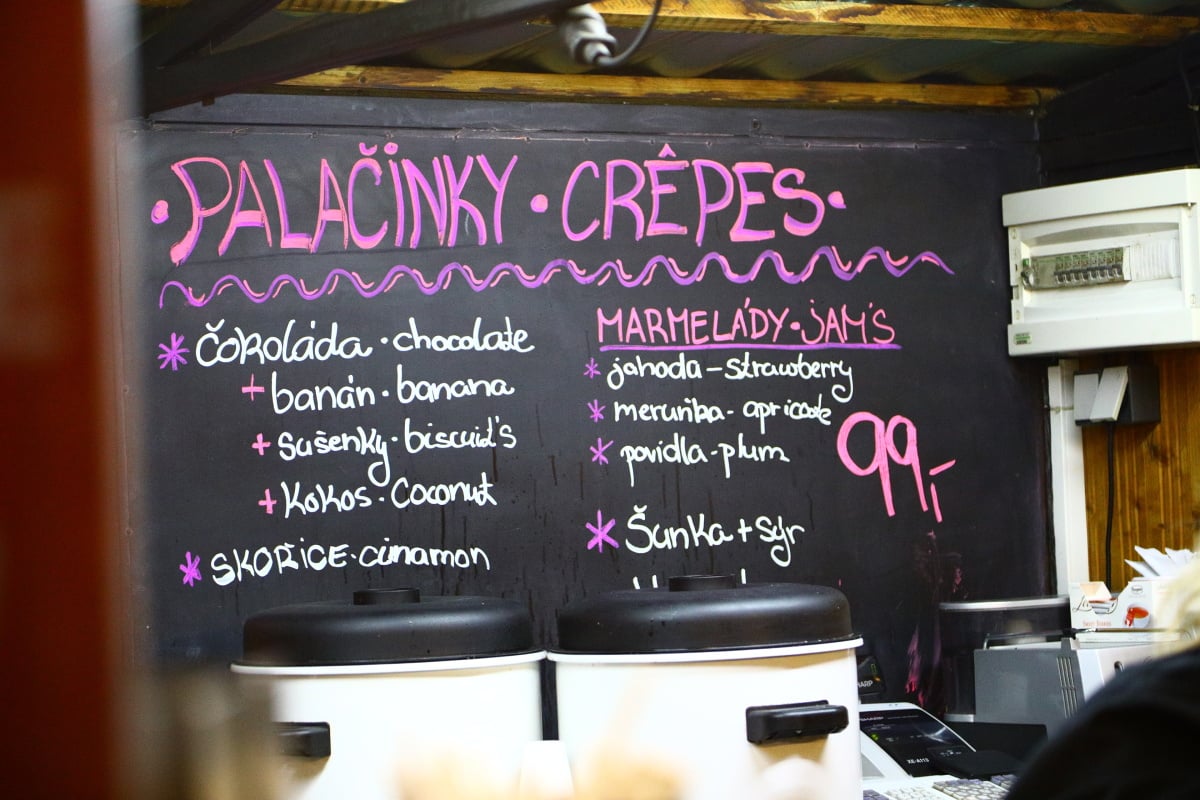 • PALAČINKY • CRÊPES •
* ČOKOláda • chocolate
+ banán • banana
+ sušenky • biscuit's
+ KoKos • Coconut
* SKOŘICE • cinamon
MARMELÁDY • JAM'S
* jahoda – strawberry
* meruňka - apricote
* povidla - plum
99,-
* Šunka + sýr
SHARP
XE-A113